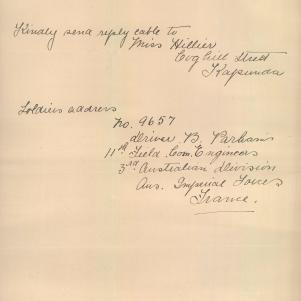 Kindly send reply cable to
Miss Hillier
Coghill Street
Kapunda
Soldiers address
No. 9657
Driver B. Parham
11th Field Com. Engineers
3rd Australian Division
Aus. Imperial Forces
France.